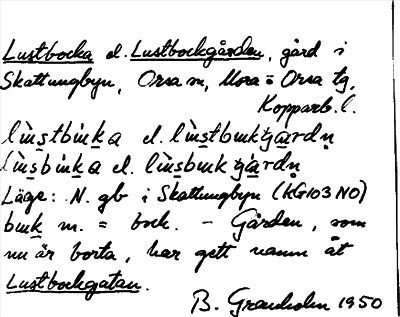 Lustbocka el. Lustbockgården, gård i
Skattungbyn, Orsa sn, Mora o Orsa tg,
Kopparb. l.
lùstbuka el. lùstbukgạ̊rdṇ
lùsbuka el. lùsbukgạ̊rdṇ
Läge: N. gb i Skattungbyn (KG103 NO)
buk m. = bock. – Gården, som
nu är borta, har gett namn åt
Lustbockgatan.
B. Granholm 1950